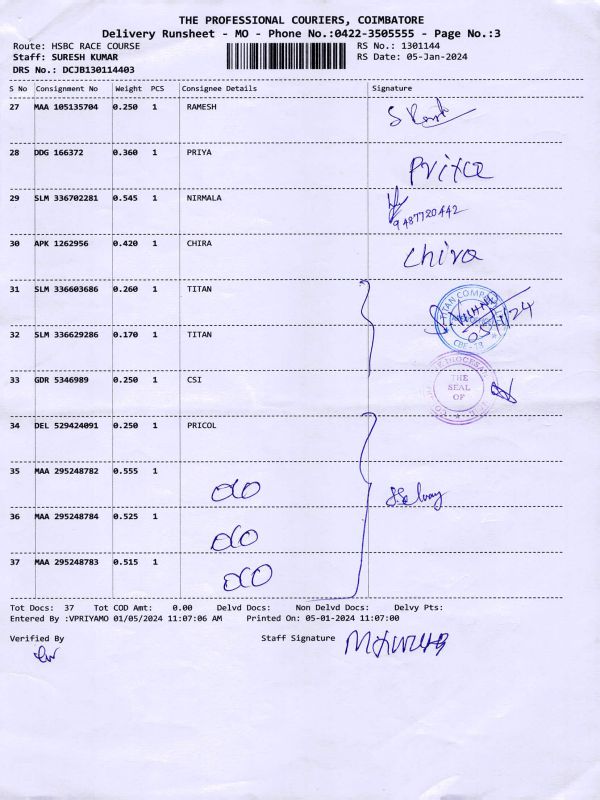 THE PROFESSIONAL COURIERS, COIMBATORE
Delivery Runsheet - MO - Phone No.:0422-3505555 - Page No.:3
Route: HSBC RACE COURSE RS No.: 1301144
Staff: SURESH KUMAR RS Date: 05-Jan-2024
DRS No.: DCJB130114403
S No Consignment No Weight PCS Consignee Details Signature
27 MAA 105135704 0.250 1 RAMESH
28 DDG 166372 0.360 1 PRIYA
29 SLM 336702281 0.545 1 NIRMALA
9487720442
30 APK 1262956 0.420 1 CHIRA Chira
31 SLM 336603686 0.260 1 TITAN
32 SLM 336629286 0.170 1 TITAN
33 GDR 5346989 0.250 1 CSI THE SEAL OF
34 DEL 529424091 0.250 1 PRICOL
35 MAA 295248782 0.555 1
36 MAA 295248784 0.525 1
37 MAA 295248783 0.515 1
Tot Docs: 37 Tot COD Amt: 0.00 Delvd Docs: Non Delvd Docs: Delvy Pts:
Entered By :VPRIYAMO 01/05/2024 11:07:06 AM Printed On: 05-01-2024 11:07:00
Verified By Staff Signature